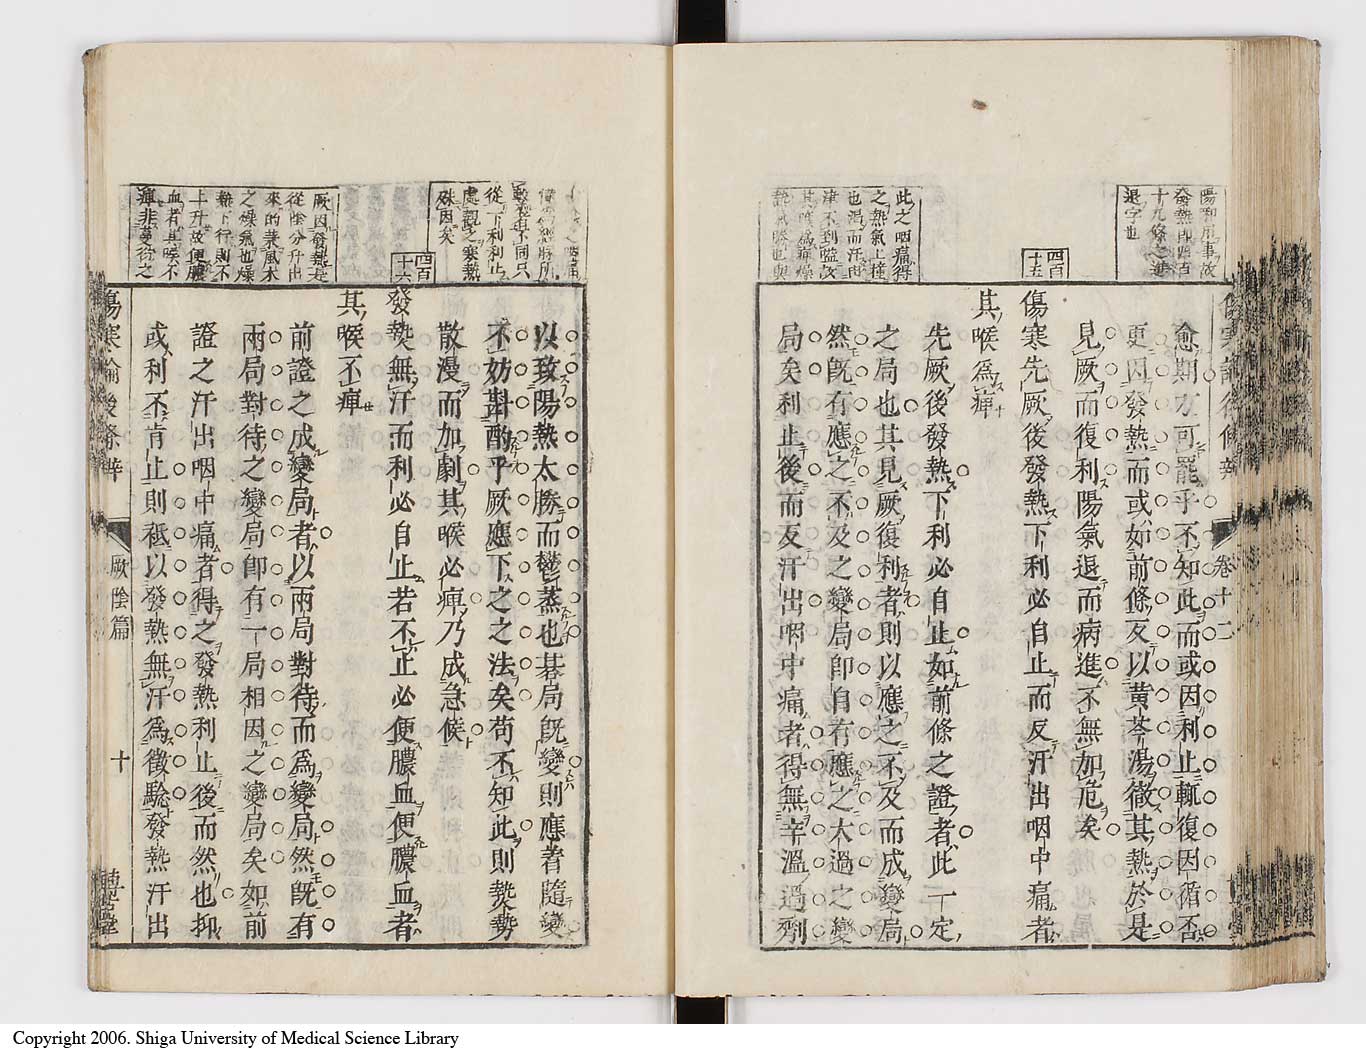 陽和用事故
發熱即四百
十九條之進
退字也
愈期方可罷乎不知此而或因利止輒復因循否
更因發熱而或如前條反以黃芩湯徹其熱於是
見厥而復利陽氣退而病進不無加危矣
四百
十五
傷寒先厥後發熱下利必自止而反汗出咽中痛者
其喉爲痺
先厥後發熱下利必自止如前條之證者此一定
之局也其見厥復利者則以應之不及而成變局
然既有應之不及之變局卽自有應之太過之變
局矣利止後而反汗出咽中痛者得無辛溫過劑
此之咽痛得
之熱氣上撞
也濕而汗出
卷十二
從下利利止
處觀之寒熱
殊因矣
以致陽熱太勝而鬱蒸也碁局既變則應者隨變
不妨斟酌乎厥應下之之法矣苟不知此則熱勢
散漫而加劇其喉必痺乃成急候
四百
十六
發熱無汗而利必自止若不止必便膿血便膿血者
其喉不痺
厥因發熱是
從陰分升出
來的兼風木
之燥氣也燥
熱下行則不
上升故便膿
血者其喉不
痺非蔓衍之
前證之成變局者以兩局對待而爲變局然既有
兩局對待之變局卽有一局相因之變局矣如前
證之汗出咽中痛者得之發熱利止後而然也抑
或利不肯止則祗以發熱無汗爲徵驗發熱汗出
傷寒論後條辨
厥陰篇
十